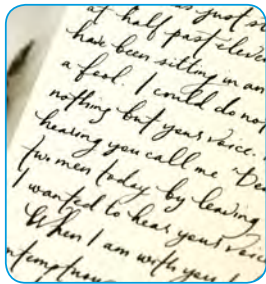 was just st
at half past eleve
have been sitting in an
a fool. I could do no
nothing but your voice.
hearing you call me "De
two men today by leaving
I wanted to hear your voic
When I am with you I
ntemptuou